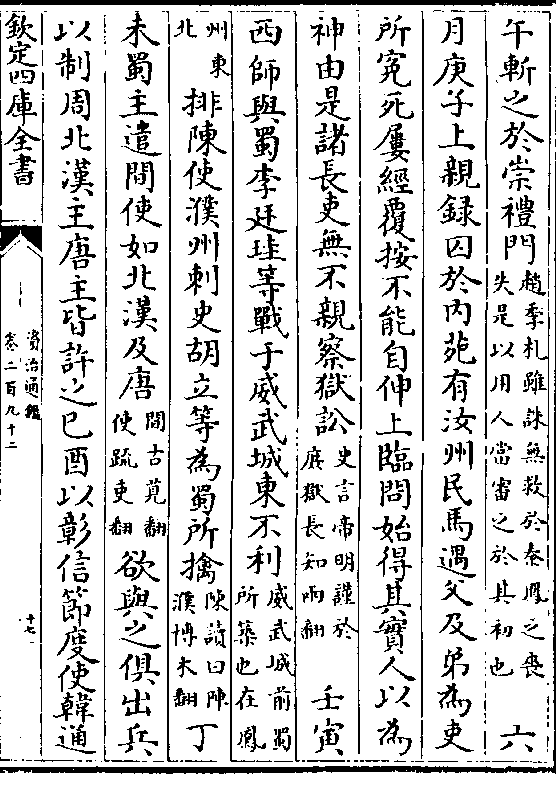 午斬之於崇禮門趙季札雖誅無救於秦鳳之喪失是以用人當審之於其初也六
月庚子上親録囚於内苑有汝州民馬遇父及弟為吏
所寃死屢經覆按不能自伸上臨問始得其實人以為
神由是諸長吏無不親察獄訟史言帝明謹於庶獄長知兩翻壬寅
西師與蜀李廷珪等戰于威武城東不利威武城前蜀所築也在鳳
州東北排陳使濮州刺史胡立等為蜀所擒陳讀曰陣濮博木翻丁
未蜀主遣間使如北漢及唐間古莧翻使疏吏翻欲與之俱出兵
以制周北漢主唐主皆許之已酉以彰信節度使韓通
欽定四庫全書
資治通鑑
卷二百九十二
十七